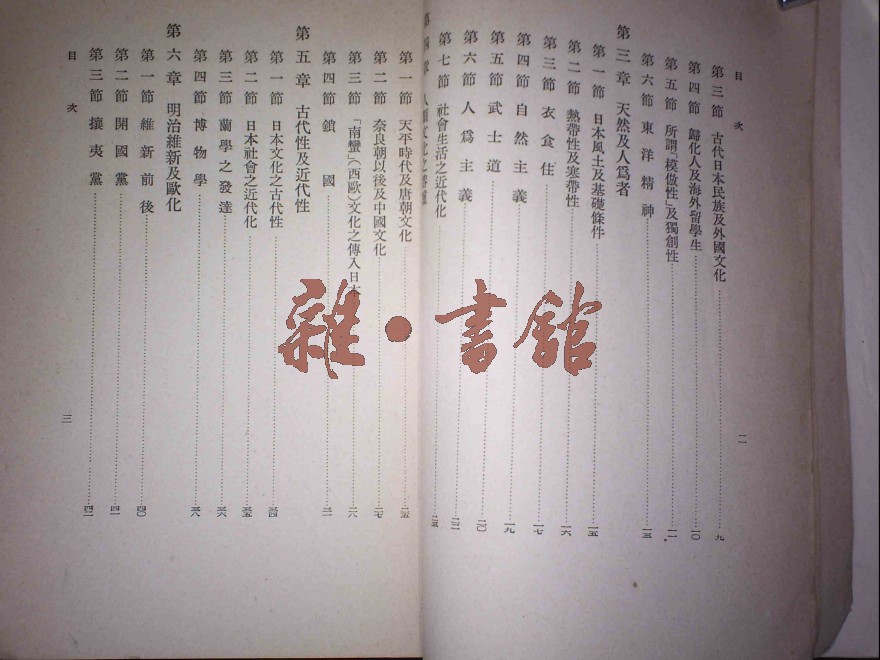 目次
二
第三節 古代日本民族及外國文化 九
第四節 歸化人及海外留學生 一〇
第五節 所謂「模倣性」及獨創性 一一
第六節 東洋精神 一三
第三章 天然及人爲者
第一節 日本風土及基礎條件 一五
第二節 熱帶性及寒帶性 一六
第三節 衣食住 一七
第四節 自然主義 一九
第五節 武士道 二〇
第六節 人爲主義 二二
第七節 社會生活之近代化
第四章 人類文化之
第一節 天平時代及唐朝文化 二五
第二節 奈良朝以後及中國文化 二七
第三節 「南蠻」(西歐)文化之傳入日本 二八
第四節 鎖國
第五章 古代性及近代性
第一節 日本文化之古代性 三四
第二節 日本社會之近代化 三五
第三節 蘭學之發達 三六
第四節 博物學 三八
第六章 明治維新及歐化
第一節 維新前後 四〇
第二節 開國黨 四一
第三節 攘夷黨 四二
目次
三
雜·書舘